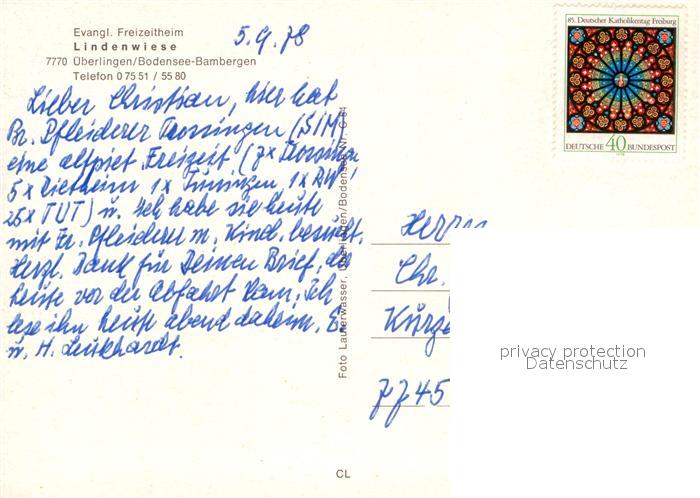 Evangl. Freizeitheim
Lindenwiese
7770 Überlingen/Bodensee-Bambergen
Telefon 0 75 51 / 55 80
5.9.78
85. Deutscher Katholikentag Freiburg
DEUTSCHE 40 BUNDESPOST
1978
Lieber Christian, hier hat
Br. Pfleiderer Trossingen (SIM)
eine altpiet Freizeit (7x Trossingen
5x Rietheim 1x Tuningen, 1x
25x TUT) u. Ich habe sie heute
mit Fr. Pfleiderer m. Kind. besucht.
Herzl. Dank für Deinen Brief, der
heute vor der Abfahrt kam. Ich
lese ihn heute abend daheim. E.
u. H. Leukhardt.
Foto Lauterwasser, Überlingen/Bodensee
Herrn
Chr.
7745
privacy protection
Datenschutz
CL